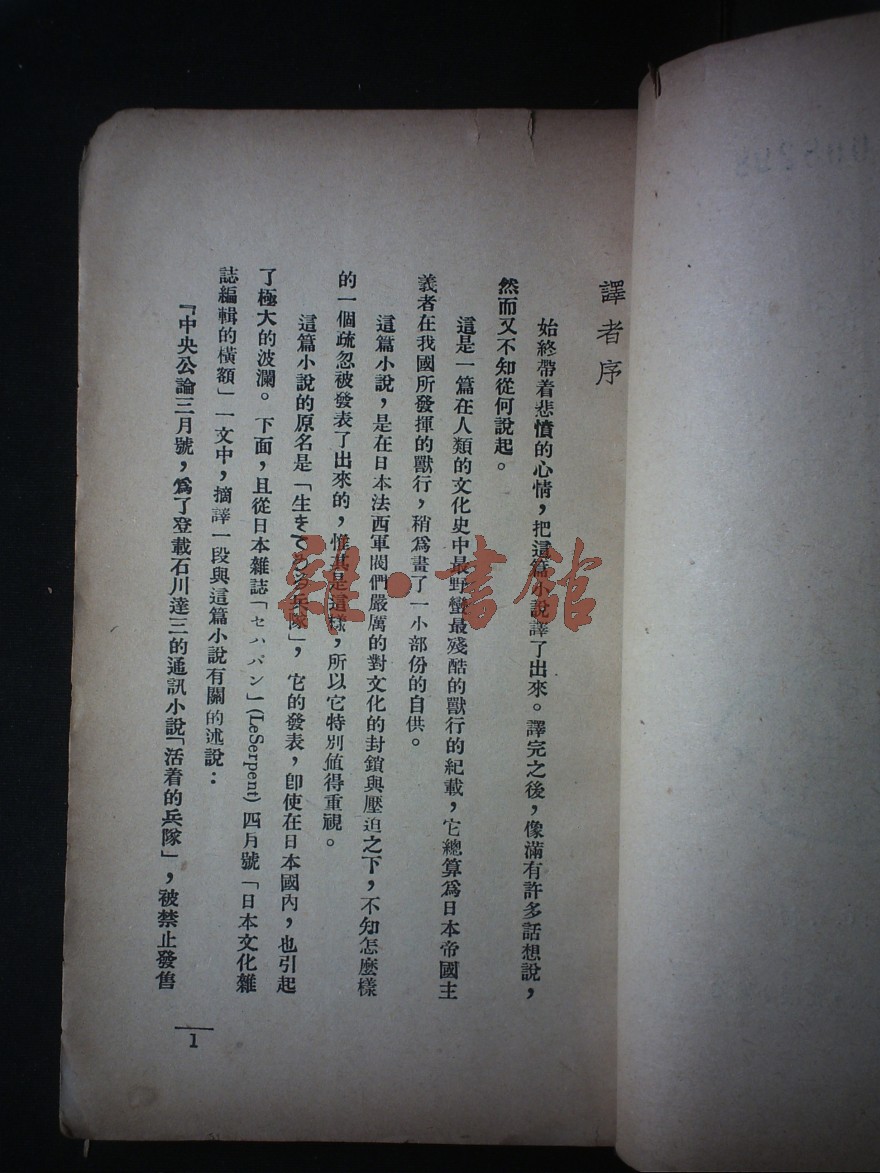 譯者序
始終帶着悲憤的心情，把這篇小說譯了出來。譯完之後，像滿有許多話想說，
然而又不知從何說起。
這是一篇在人類的文化史中最野蠻最殘酷的獸行的紀載，它總算爲日本帝國主
義者在我國所發揮的獸行，稍爲畫了一小部份的自供。
這篇小說，是在日本法西軍閥們嚴厲的對文化的封鎖與壓迫之下，不知怎麼樣
的一個疏忽被發表了出來的，惟其是這樣，所以它特別値得重視。
這篇小說的原名是「生きてゐる兵隊」，它的發表，卽使在日本國內，也引起
了極大的波瀾。下面，且從日本雜誌「セハパン」(LeSerpent)四月號「日本文化雜
誌編輯的橫額」一文中，摘譯一段與這篇小說有關的述說：
「中央公論三月號，爲了登載石川達三的通訊小說「活着的兵隊」，被禁止發售
1
雜·書館